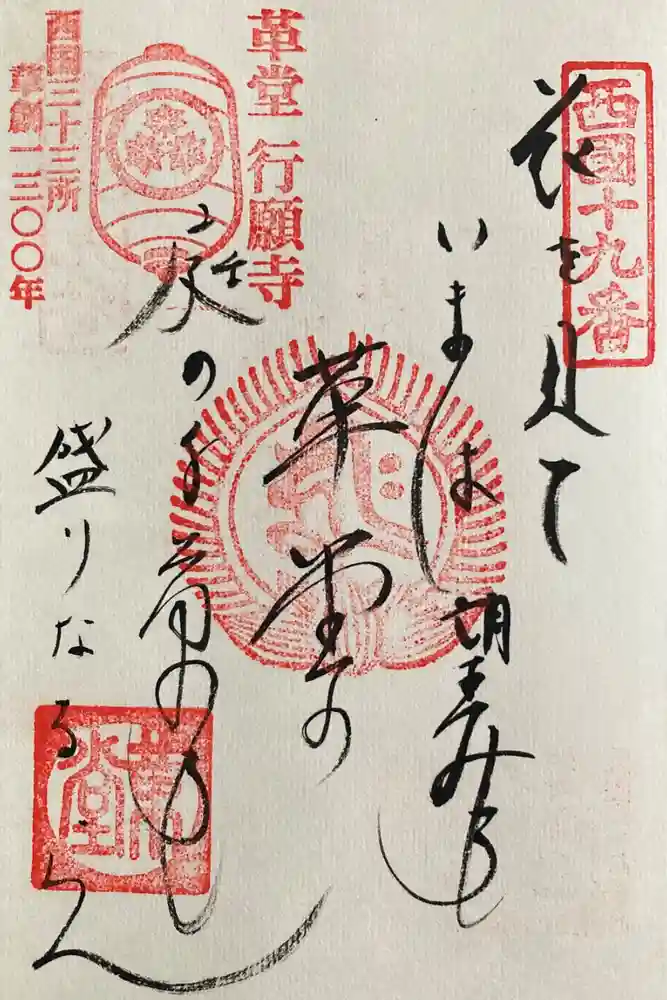 西國十九番
花を見て
いまは望みも
革堂の
革堂 行願寺
庭の千草も
盛りなるらん
西国三十三所
草創一三〇〇年
革堂